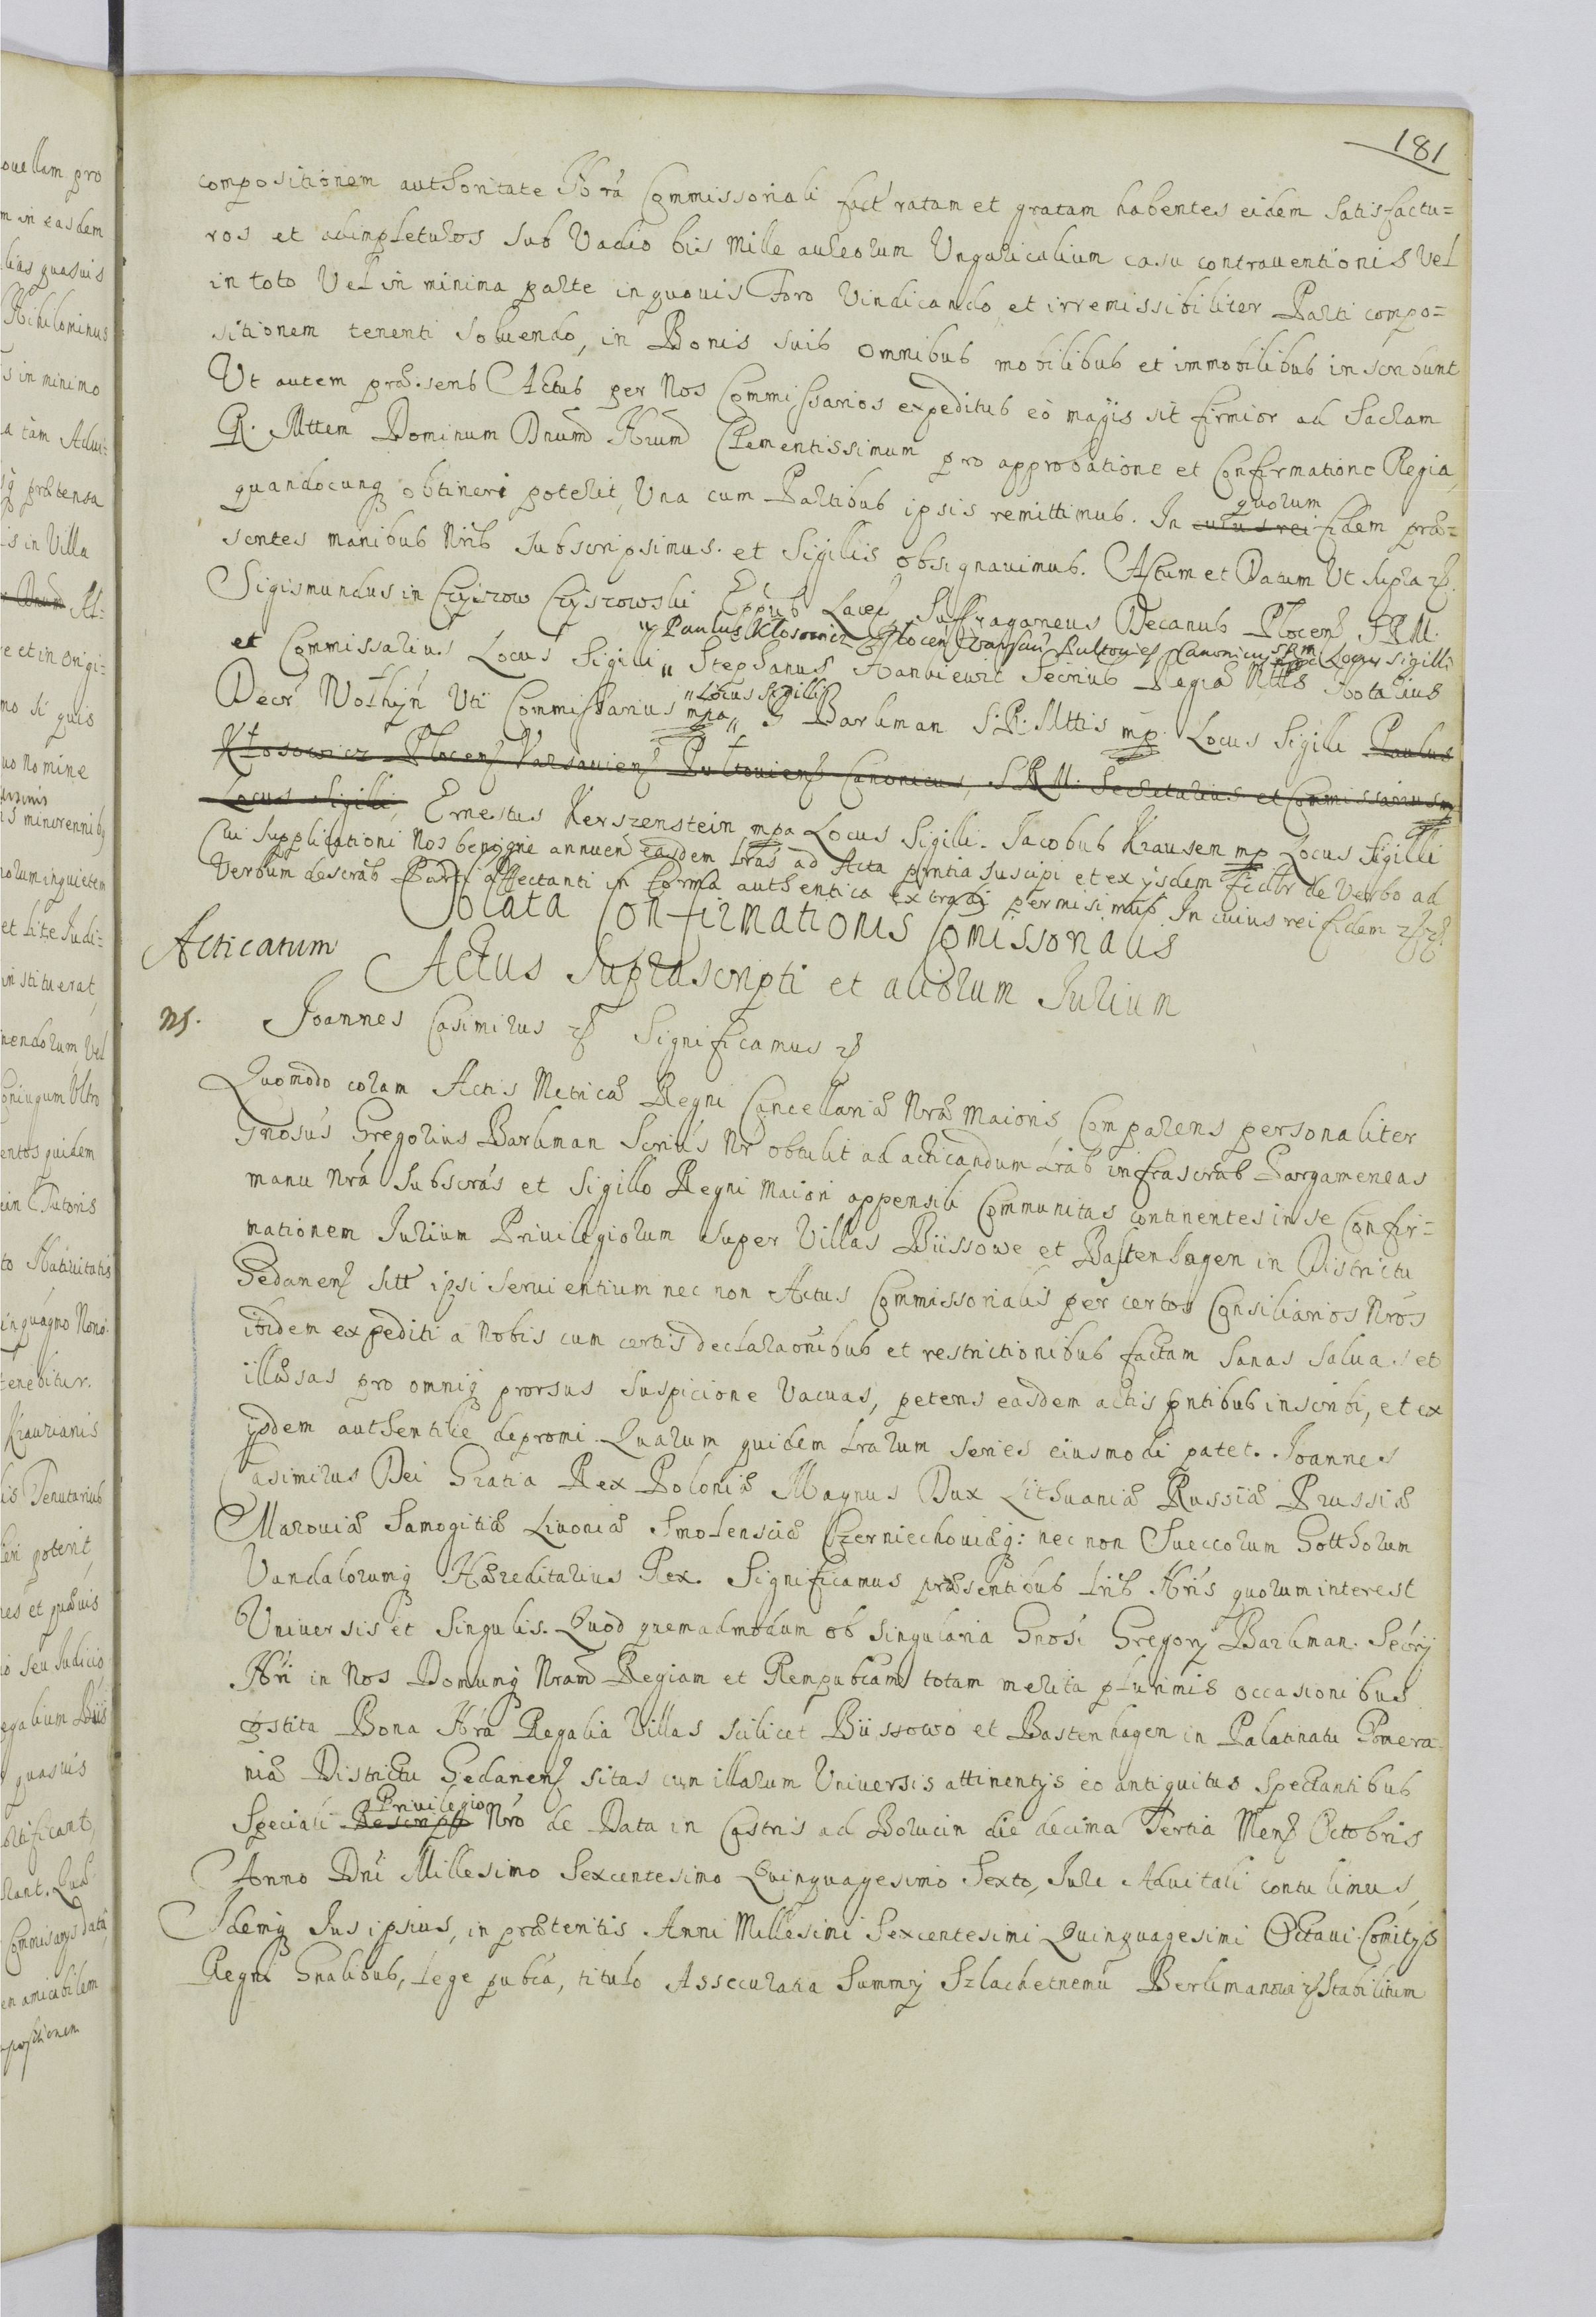 181
compositionem authoritate Nrâ Commissoriali fact ratam et gratam habentes eidem satisfactu=
ros et adimpleturos sub Vadio bis Mille aureorum Ungaricalium casu contrauentionis Vel
in toto Vel in minima parte in quouis Foro Vindicando et irremissibiliter Parti compo=
sitionem tenenti soluendo, in Bonis suis omnibus mobilibus et immobilibus inscribunt
Ut autem præsens Actus per Nos Commissarios expeditus eò magis sit firmior ad Sacram
R. Mttem Dominum Dnum Nrum Clementissimum pro approbatione et Confirmatione Regia,
quandocunq obtineri poterit, Una cum Partibus ipsis remittimus. In cuius rei quorum fidem præ=
sentes manibus Nris subscripsimus. et Sigillis obsignauimus. Actum et Datum Ut supra
Sigismundus in Czyżow Czyzowski Eppus Laceд Suffraganeus Decanus Plocen S R M.
" Paulus Klosowicz Plocen Varsauien Pultouien Canonicus SRM Locus Sigilli
et Commissarius Locus Sigilli " Stephanus Hankiewic Secrius Regiæ Mttis Notarius
Decr Wolhyn Uti Commissarius " Locus Sigilli mpa " G Barkman S. R. Mttis mp. Locus Sigilli Paulus
Klosowicz Plocen Varsauien Pultouien Canonicus, S R M. Secretarius et Commissarius mp
Locus Sigilli, Ernestus Kerszenstein mpa Locus Sigilli. Jacobus Krausen mp Locus Sigilli
Cui supplicationi Nos benigne annuen easdem Lras ad Acta pntia suscipi et ex ijsdem fidelr de Verbo ad
Verbum descrâs Parti affectanti in forma authentica extradi permisimus. In cuius rei fidem
Oblata Confirmationis Comissorialis
Acticatum Actus Suprascripti et aliorum Iurium
NS. Joannes Casimirus Significamus
Quomodo coram Actis Metricæ Regni Cancellariæ Nræ Maioris, Comparens personaliter
Gnosus Gregorius Barkman Scrius Nr obtulit ad acticandum Lras infrascras Pargameneas
manu Nrâ Subscrás et Sigillo Regni Maiori appensili Communitas continentes in se Confir=
mationem Iurium Priuilegiorum super Villas Biissowe et Bastenhagen in Districtu
Gedanen sitt ipsi seruientium nec non Actus Commissorialis per certos Consiliarios Nros
ibidem expediti a Nobis cum certis declaraonibus et restrictionibus factam Sanas Saluas et
illæsas pro omniq prorsus suspicione Vacuas, petens easdem actis pntibus inscribi, et ex
ijsdem authentice depromi. Quarum quidem Lrarum series eiusmodi patet. Joannes
Casimirus Dei Gratia Rex Poloniæ Magnus Dux Lithuaniæ Russiæ Prussiæ
Mazouiæ Samogitiæ Liuoniæ Smolensciæ Czerniechouiæq: nec non Sueccorum Gotthorum
Vandalorumq Hæreditarius Rex. Significamus præsentibus Lris Nris quorum interest
Uniuersis et Singulis. Quod quemadmodum ob singularia Gnosi Gregorij Barkman. Secrij
Nri in Nos Domumq Nram Regiam et Rempubcam totam merita plurimis occasionibus
præstita Bona Nra Regalia Villas scilicet Biissowo et Bastenhagen in Palatinatu Pomera=
niæ Districtu Gedanen sitas cum illarum Uniuersis attinentijs eo antiquitus spectantibus
Speciali Rescripto Priuilegio Nro de Data in Castris ad Bolucin die decima Tertia Mens Octobris
Anno Dni Millesimo Sexcentesimo Quinquagesimo Sexto, Iure Aduitali contulimus,
Idemq Ius ipsius, in præteritis Anni Millesimi Sexcentesimi Quinquagesimi Octaui Comitijs
Regni Gnalibus, Lege pubca, titulo Assecuratia Summy Szlachetnemu Berkmanowi Stabilitum